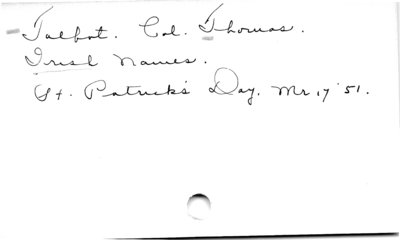 Talbot. Col. Thomas.
Irish Names.
St. Patrick's Day. Mr. 17 '51.